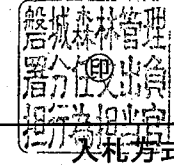 磐城森林管理
署分任支出負
担行為担当官
印
入札方式